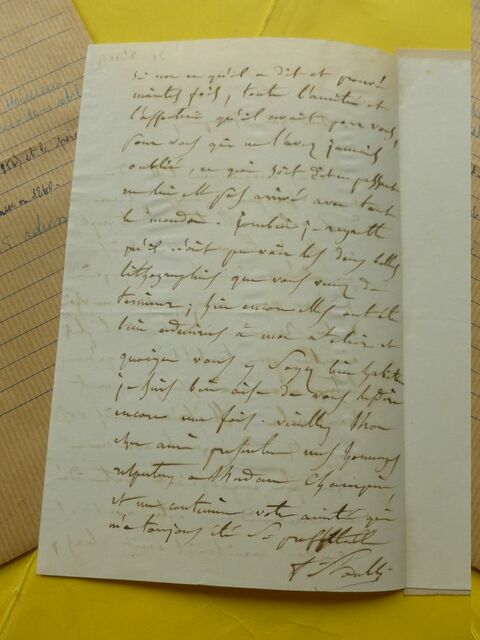 si non ce qu'il a dit et
maintes fois, toute l'amitié et
l'affection qu'il avait pour vous!
pour vous qui ne l'avez jamais
oublié, ce qui soit dit en passant
ne lui est pas arrivé avec tout
le monde. Combien je regrette
qu'il n'ait pu voir les deux belles
lithographies que vous venez de
terminer; hier encore elles ont été
bien admirées à mon atelier et
quoique vous y soyez bien habitué
je suis bien aise de vous le dire
encore une fois. veuillez Mon
cher ami présenter mes hommages
respectueux a Madame
et me continuer votre amitié qui
m'a toujours été si